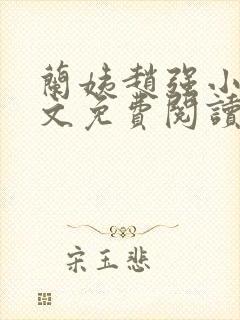 蘭姨趙強小
文免費閱讀
宋玉悲